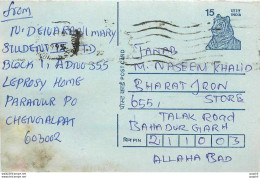 from
N. DEIVARANI MARY
STUDENT LTD
BLOCK 11 ADNO 355
LEPROSY HOME
PARANUR PO
CHENGALPAT
603002
15
भारत INDIA
पोस्ट कार्ड POST CARD
JANAB
M. NASEEM KHALID
BHARAT IRON
STORE
655,
TALAK ROAD
BAHADUR GARH
पिन PIN
211003
ALLAHA BAD